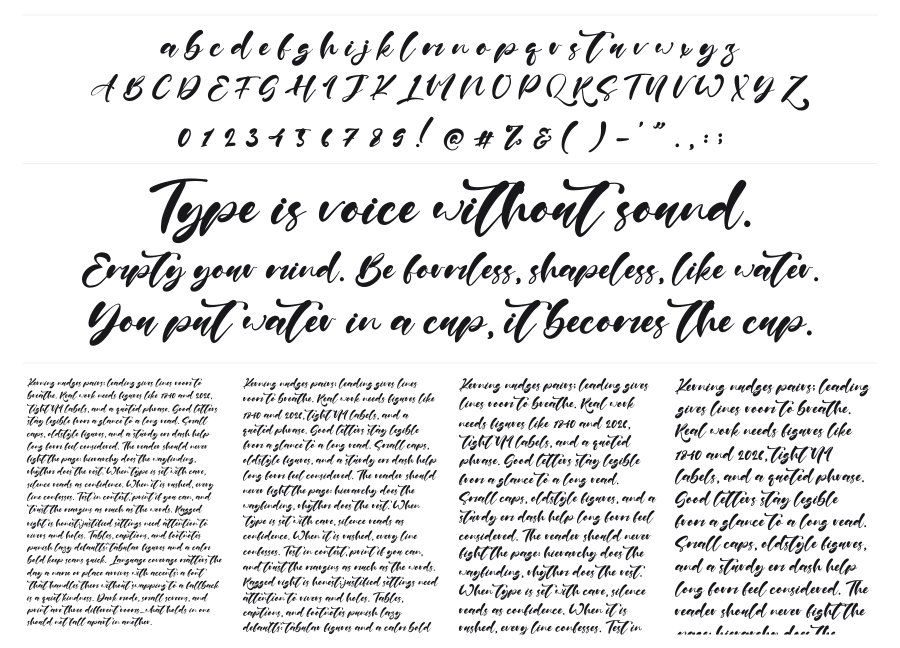 a b c d e f g h i j k l m n o p q r s t u v w x y z
A B C D E F G H I J K L M N O P Q R S T U V W X Y Z
0 1 2 3 4 5 6 7 8 9 ! @ # % & ( ) – ' " . , : ;
Type is voice without sound.
Empty your mind. Be formless, shapeless, like water.
You put water in a cup, it becomes the cup.
Kerning nudges pairs; leading gives lines room to
breathe. Real work needs figures like 1840 and 2026,
tight VM labels, and a quoted phrase. Good letters
stay legible from a glance to a long read. Small
caps, oldstyle figures, and a sturdy em dash help
long form feel considered. The reader should never
fight the page: hierarchy does the wayfinding,
rhythm does the rest. When type is set with care,
silence reads as confidence. When it is rushed, every
line confesses. Test in context, print if you can, and
trust the margins as much as the words. Ragged
right is honest; justified settings need attention to
rivers and holes. Tables, captions, and footnotes
punish lazy defaults: tabular figures and a calm
bold keep scans quick. Language coverage matters the
day a name or place arrives with accents; a font
that handles them without swapping to a fallback
is a quiet kindness. Dark mode, small screens, and
print are three different rooms—what holds in one
should not fall apart in another.
Kerning nudges pairs; leading gives lines
room to breathe. Real work needs figures like
1840 and 2026, tight VM labels, and a
quoted phrase. Good letters stay legible
from a glance to a long read. Small caps,
oldstyle figures, and a sturdy em dash help
long form feel considered. The reader should
never fight the page: hierarchy does the
wayfinding, rhythm does the rest. When
type is set with care, silence reads as
confidence. When it is rushed, every line
confesses. Test in context, print if you can,
and trust the margins as much as the words.
Ragged right is honest; justified settings need
attention to rivers and holes. Tables,
captions, and footnotes punish lazy
defaults: tabular figures and a calm bold
Kerning nudges pairs; leading gives
lines room to breathe. Real work
needs figures like 1840 and 2026,
tight VM labels, and a quoted
phrase. Good letters stay legible
from a glance to a long read.
Small caps, oldstyle figures, and a
sturdy em dash help long form feel
considered. The reader should never
fight the page: hierarchy does the
wayfinding, rhythm does the rest.
When type is set with care, silence
reads as confidence. When it is
rushed, every line confesses. Test in
Kerning nudges pairs; leading
gives lines room to breathe.
Real work needs figures like
1840 and 2026, tight VM
labels, and a quoted phrase.
Good letters stay legible
from a glance to a long read.
Small caps, oldstyle figures,
and a sturdy em dash help
long form feel considered. The
reader should never fight the
page: hierarchy does the